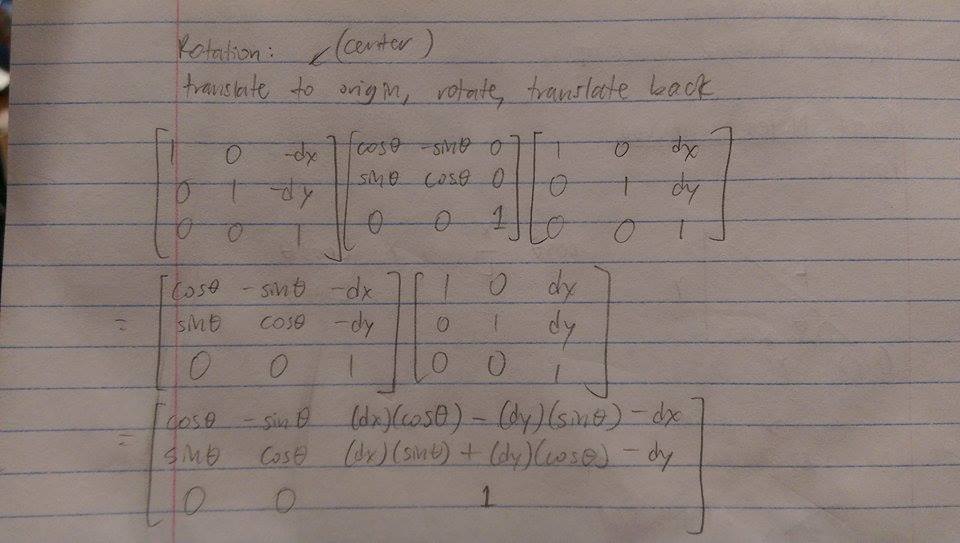 Rotation: ↙ (center)
translate to origin, rotate, translate back
[1 0 -dx] [cosθ -sinθ 0] [1 0 dx]
[0 1 -dy] [sinθ cosθ 0] [0 1 dy]
[0 0 1] [0 0 1] [0 0 1]
[cosθ -sinθ -dx] [1 0 dx]
= [sinθ cosθ -dy] [0 1 dy]
[0 0 1] [0 0 1]
[cosθ -sinθ (dx)(cosθ) - (dy)(sinθ) - dx]
= [sinθ cosθ (dx)(sinθ) + (dy)(cosθ) - dy]
[0 0 1]